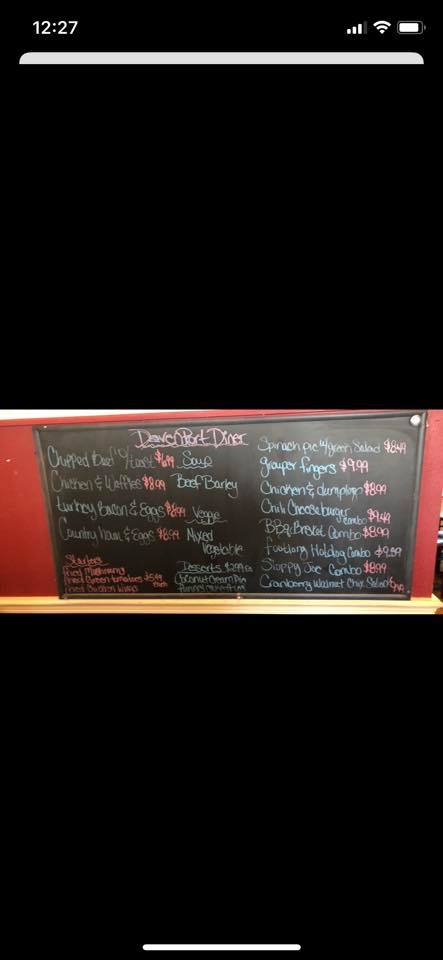 12:27
DavenPort Diner
Chipped Beef o/Toast $6.99
Chicken & Waffles $8.99
Turkey Bacon & Eggs $8.99
Country ham & Eggs $8.99
Starters
Fried Mushrooms
Fried Green tomatoes $5.49
each
Fried Chicken Wings
Soup
Beef Barley
Veggie
Mixed
Vegetable
Desserts $2.99
Coconut Cream Pie
Spinach pie w/green Salad $8.49
grouper fingers $9.99
Chicken & dumplings $8.99
Chili Cheeseburger
combo $9.49
BBq Brisket Combo $8.99
Footlong Hotdog Combo $9.59
Sloppy Joe Combo $8.99
Cranberry Walnut Chix Salad